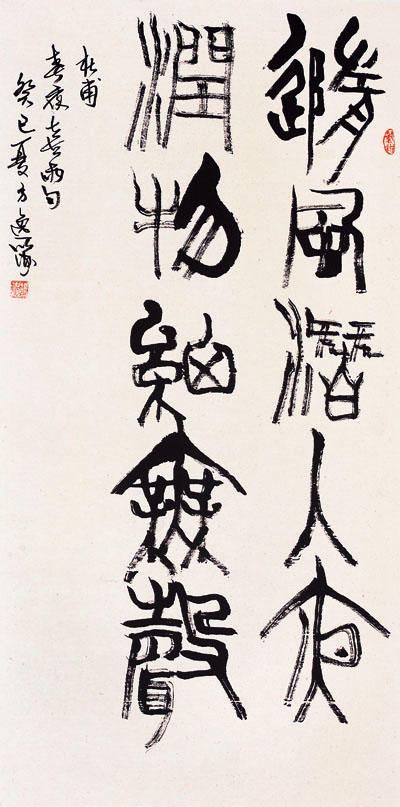 隨風潛入夜
潤物細無聲
杜甫
春夜喜雨句
癸巳夏方逸